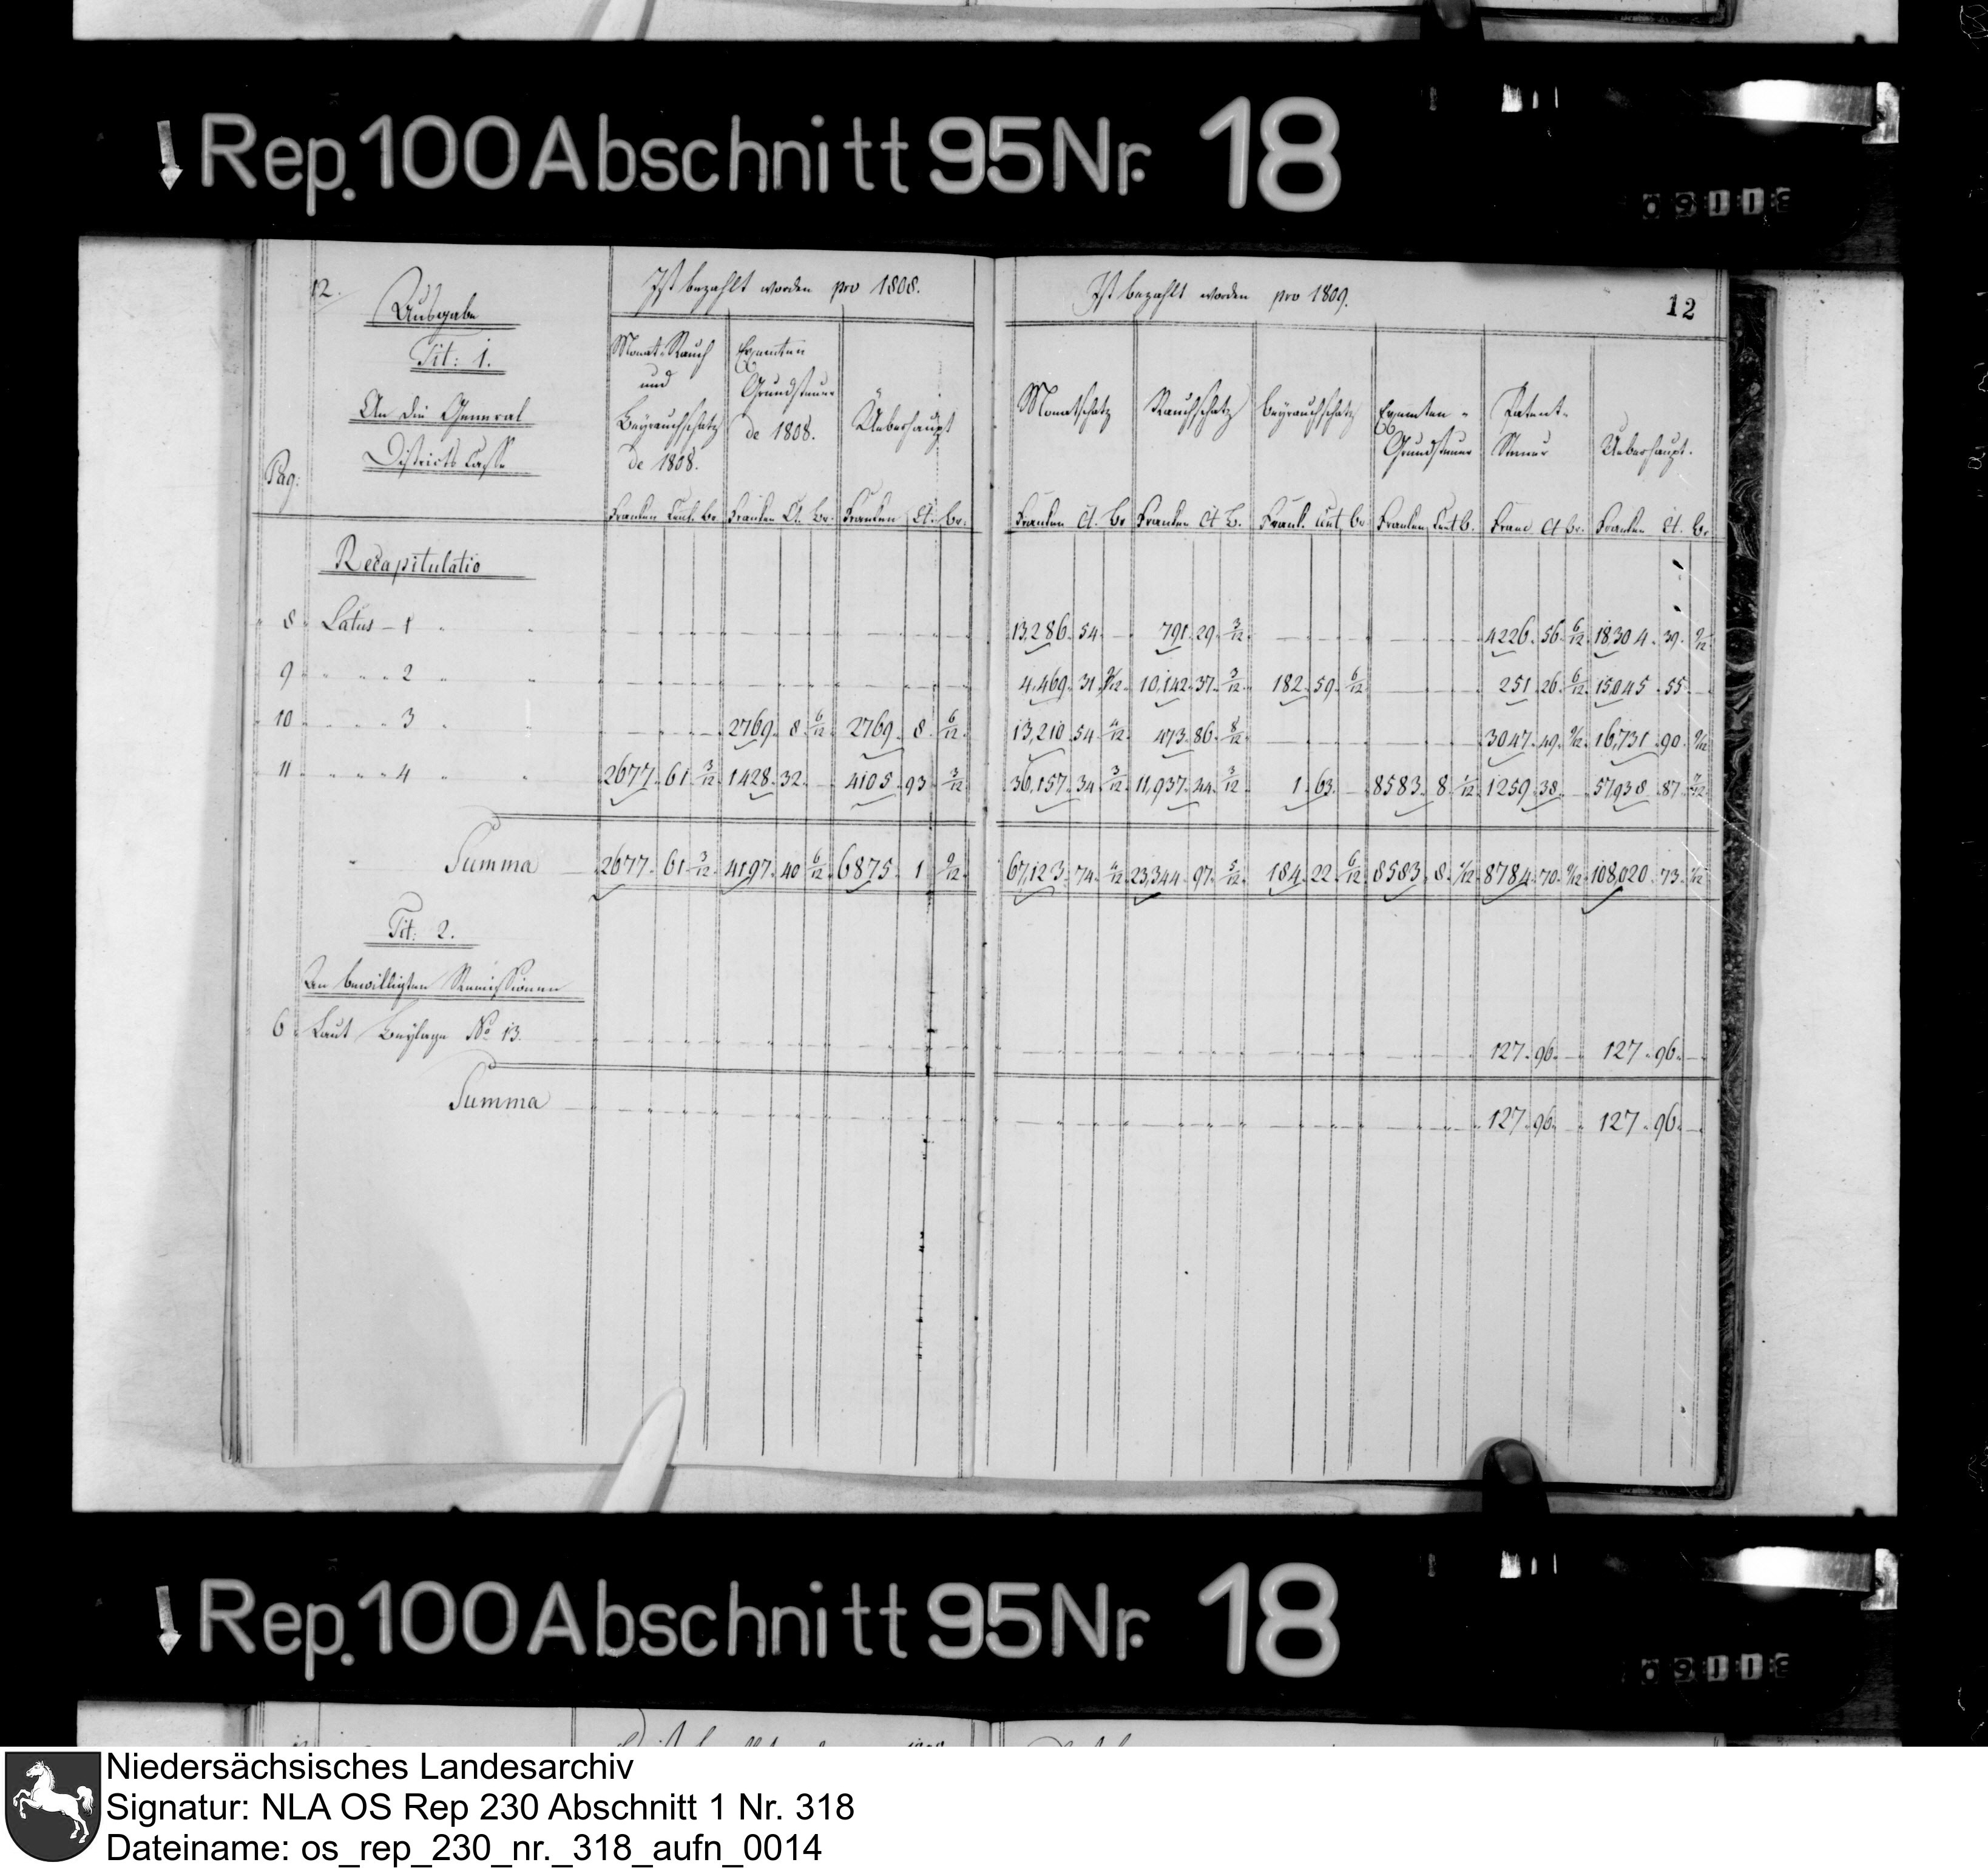 Rep. 100 Abschnitt 95 Nr. 18
09118
12.
Ausgabe
Tit: 1.
An die General
Districts Casse
Pag:
Ist bezahlt worden pro 1808.
Monat-Rauch
und
Beyrauchschatz
de 1808.
Exemten
Grundsteuer
de 1808.
Ueberhaupt
Franken Cent. br. Franken Ct. br. Franken Ct. br.
Ist bezahlt worden pro 1809.
12
Monatschatz Rauchschatz Beyrauchschatz
Exemten-
Grundsteuer
Patent-
Steuer
Ueberhaupt.
Franken Ct. br Franken Ct b. Frank. Cent br Franken Cent b. Franc Ct br. Franken Ct. br.
Recapitulatio
8 Latus - 1 13,286. 54. 791. 29. 3/12 4226. 56. 6/12 18304. 39. 9/12
9 " " 2 4,469. 31 9/12 10,142. 37. 3/12 182. 59. 6/12 251. 26. 6/12 15,045. 55.
10 " " 3 2769. 8. 6/12 2769. 8. 6/12 13,210. 54. 473. 86. 8/12 3047. 49. 9/12 16,731. 90. 9/12
11 " " 4 2677. 61. 3/12 1428. 32. 4105. 93. 3/12 36,157. 34. 3/12 11,937. 44. 3/12 1. 63. 8583. 8. 1/12 1259. 38. 57,938. 87. 7/12
Summa 2677. 61. 3/12 4197. 40. 6/12 6875. 1. 9/12 67,123. 74. 23,344. 97. 5/12 184. 22. 6/12 8583. 8. 1/12 8784. 70. 9/12 108,020. 73. 1/12
Tit: 2.
An bewilligten Remissionen
6 Laut Beylage No 13. 127. 96. 127. 96.
Summa 127. 96. 127. 96.
Rep. 100 Abschnitt 95 Nr. 18
09118
Niedersächsisches Landesarchiv
Signatur: NLA OS Rep 230 Abschnitt 1 Nr. 318
Dateiname: os_rep_230_nr._318_aufn_0014